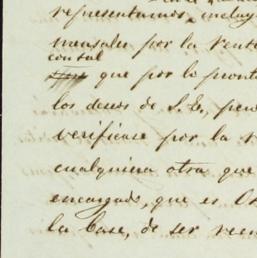 representamos, incluy
mensales por la rent
con tal
que por lo pront
los deseos de S. E., per
verificase por la
cualquiera otra que
encargado, que es
la base, de ser reem